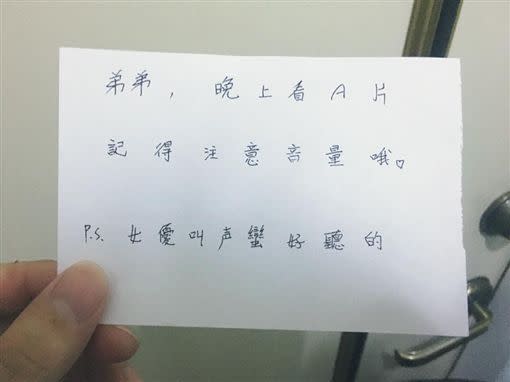 弟弟，晚上看A片
記得注意音量哦♡
P.S. 女優叫声蠻好聽的